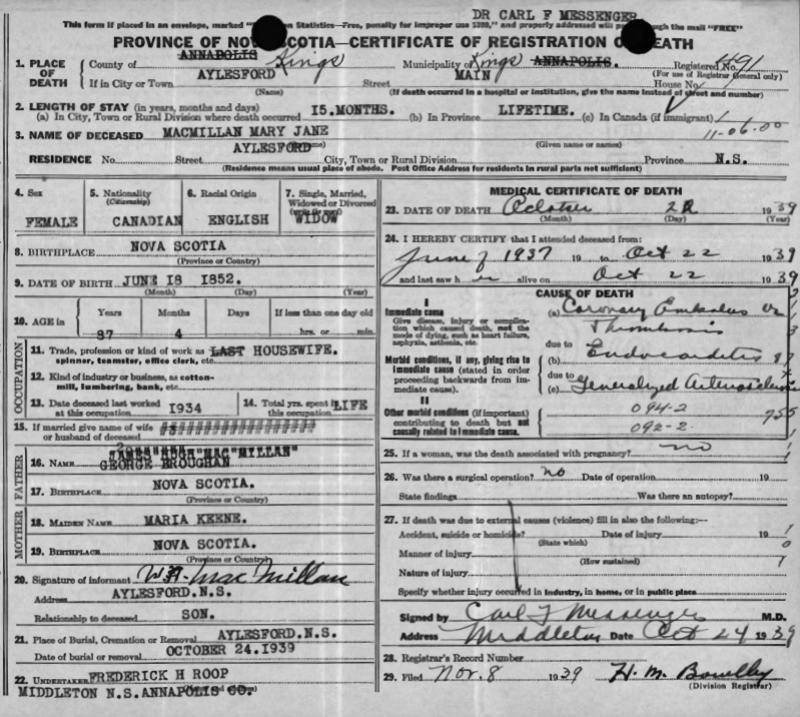 DR CARL F MESSENGER
This form if placed in an envelope, marked "Statistics—Free, penalty for improper use $300," and properly addressed will pass through the mail "FREE"
PROVINCE OF NOVA SCOTIA—CERTIFICATE OF REGISTRATION OF DEATH
1. PLACE OF DEATH
County of ANNAPOLIS Kings Municipality of Kings ANNAPOLIS. Registered No. 491
(For use of Registrar General only)
If in City or Town AYLESFORD Street MAIN House No.
(Name) (If death occurred in a hospital or institution, give the name instead of street and number)
2. LENGTH OF STAY (in years, months and days)
(a) In City, Town or Rural Division where death occurred 15.MONTHS. (b) In Province LIFETIME. (c) In Canada (if immigrant)
11-06.00
3. NAME OF DECEASED MACMILLAN MARY JANE
(Given name or names)
RESIDENCE No. Street AYLESFORD City, Town or Rural Division Province N.S.
(Residence means usual place of abode. Post Office Address for residents in rural parts not sufficient)
4. Sex FEMALE
5. Nationality (Citizenship) CANADIAN
6. Racial Origin ENGLISH
7. Single, Married, Widowed or Divorced (write the word) WIDOW
8. BIRTHPLACE NOVA SCOTIA
(Province or Country)
9. DATE OF BIRTH JUNE 18 1852.
(Month) (Day) (Year)
10. AGE in Years Months Days If less than one day old
87 4 hrs. or min.
OCCUPATION
11. Trade, profession or kind of work as LAST HOUSEWIFE.
spinner, teamster, office clerk, etc.
12. Kind of industry or business, as cotton-
mill, lumbering, bank, etc.
13. Date deceased last worked at this occupation 1934
14. Total yrs. spent in this occupation LIFE
15. If married give name of wife or husband of deceased
FATHER
16. NAME GEORGE BROUGHAN
17. BIRTHPLACE NOVA SCOTIA.
(Province or Country)
MOTHER
18. MAIDEN NAME MARIA KEENE.
19. BIRTHPLACE NOVA SCOTIA.
(Province or Country)
20. Signature of informant W.H. MacMillan
Address AYLESFORD.N.S.
Relationship to deceased SON.
21. Place of Burial, Cremation or Removal AYLESFORD.N.S.
Date of burial or removal OCTOBER 24.1939
22. UNDERTAKER FREDERICK H ROOP
MIDDLETON N.S.ANNAPOLIS CO.
MEDICAL CERTIFICATE OF DEATH
23. DATE OF DEATH October 22 1939
(Month) (Day) (Year)
24. I HEREBY CERTIFY that I attended deceased from:
June 1937 19 to Oct 22 1939
and last saw her alive on Oct 22 1939
CAUSE OF DEATH
I
Immediate cause (a) Coronary Embolus or
Give disease, injury or complication which caused death, not the mode of dying, such as heart failure, asphyxia, asthenia, etc.
Thrombosis
due to
Morbid conditions, if any, giving rise to immediate cause (stated in order proceeding backwards from immediate cause).
(b) Endocarditis
due to
(c) Generalized Arteriosclerosis
II
Other morbid conditions (if important) contributing to death but not causally related to immediate cause.
094-2
092-2.
25. If a woman, was the death associated with pregnancy? no
26. Was there a surgical operation? no Date of operation 19
State findings Was there an autopsy?
27. If death was due to external causes (violence) fill in also the following:—
Accident, suicide or homicide? Date of injury 19
(State which)
Manner of injury
(How sustained)
Nature of injury
Specify whether injury occurred in industry, in home, or in public place
Signed by Carl F Messenger M.D.
Address Middleton Date Oct 24 1939
28. Registrar's Record Number
29. Filed Nov. 8 1939 H. M.
(Division Registrar)